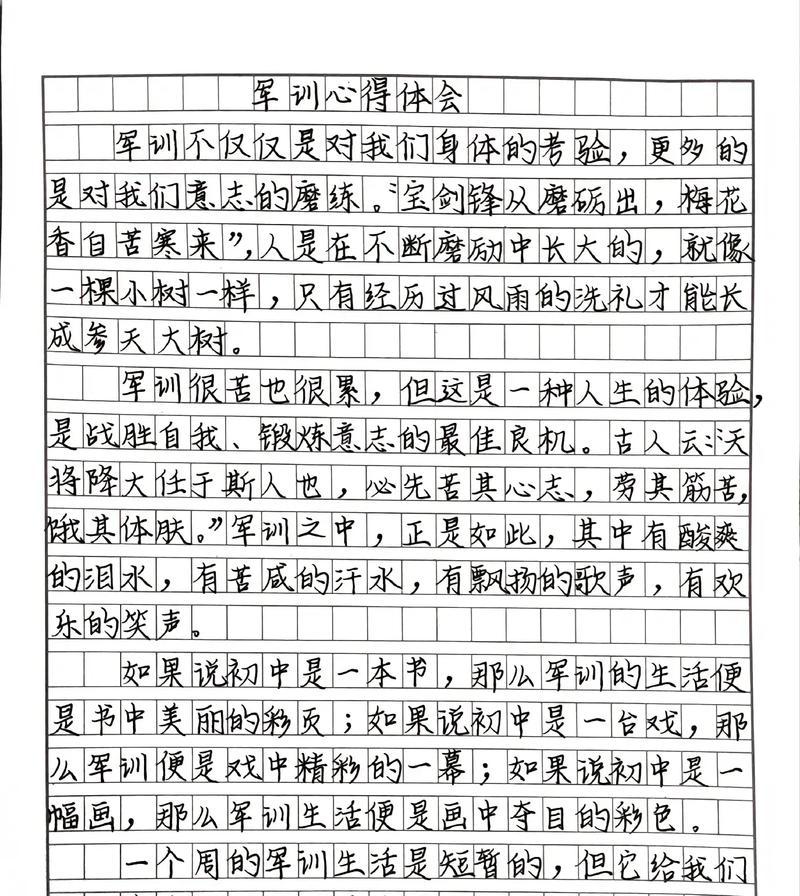 军训心得体会
军训不仅仅是对我们身体的考验，更多的
是对我们意志的磨练。“宝剑锋从磨砺出，梅花
香自苦寒来”，人是在不断磨励中长大的，就像
一棵小树一样，只有经历过风雨的洗礼才能长
成参天大树。
军训很苦也很累，但这是一种人生的体验，
是战胜自我、锻炼意志的最佳良机。古人云：“天
将降大任于斯人也，必先苦其心志，劳其筋苦，
饿其体肤。”军训之中，正是如此，其中有酸爽
的泪水，有苦咸的汗水，有飘扬的歌声，有欢
乐的笑声。
如果说初中是一本书，那么军训的生活便
是书中美丽的彩页；如果说初中是一台戏，那
么军训便是戏中精彩的一幕；如果说初中是一
幅画，那么军训生活便是画中夺目的彩色。
一个周的军训生活是短暂的，但它给我们